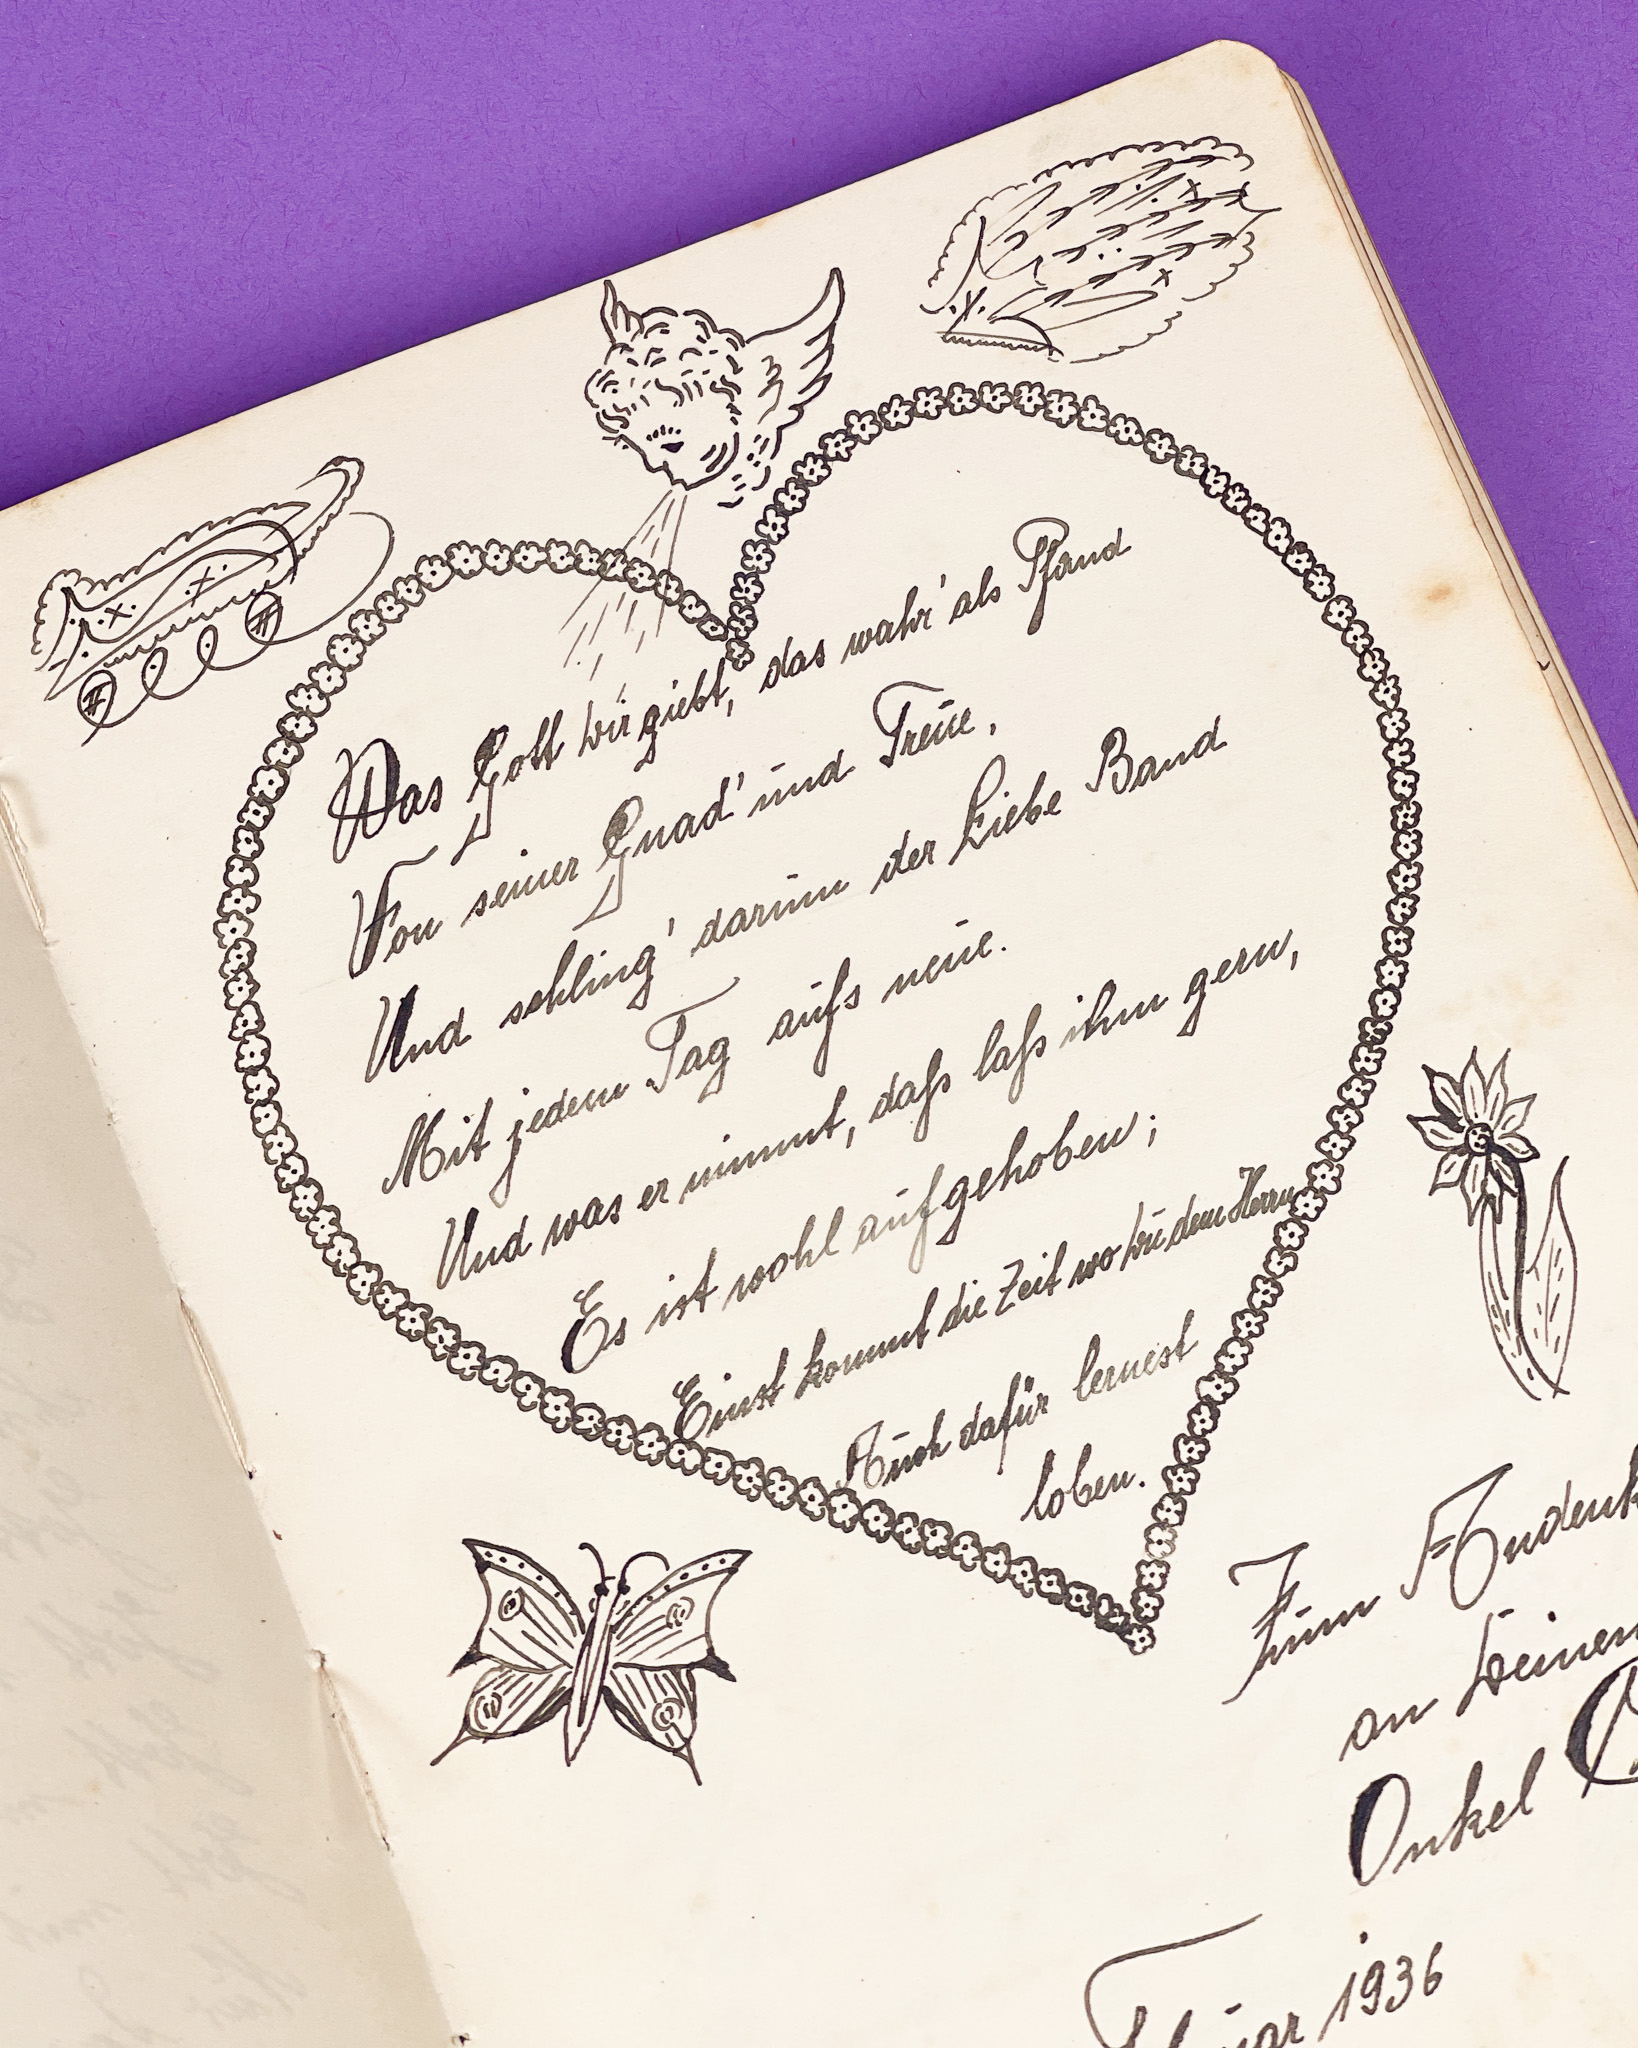 Was Gott dir giebt, das wahr' als Pfand
Von seiner Gnad' und Treue,
Und schling' darum der Liebe Band
Mit jedem Tag aufs neue.
Und was er nimmt, daß laß ihm gern,
Es ist wohl aufgehoben;
Einst kommt die Zeit wo du dem Herrn
Auch dafür lernest
loben.
Zum Andenk
an Deinen
Onkel
Februar 1936